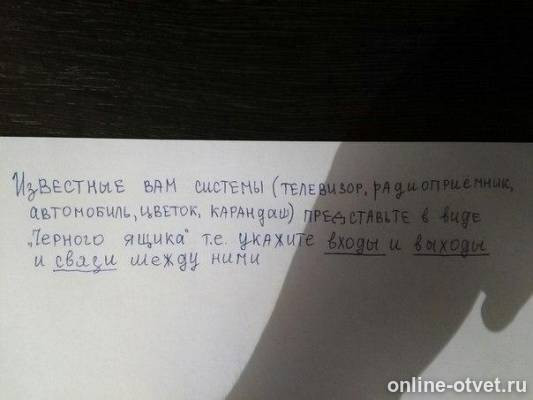 Известные вам системы (телевизор, радиоприемник,
автомобиль, цветок, карандаш) представьте в виде
"Черного ящика" т.е. укажите входы и выходы
и связи между ними
online-otvet.ru